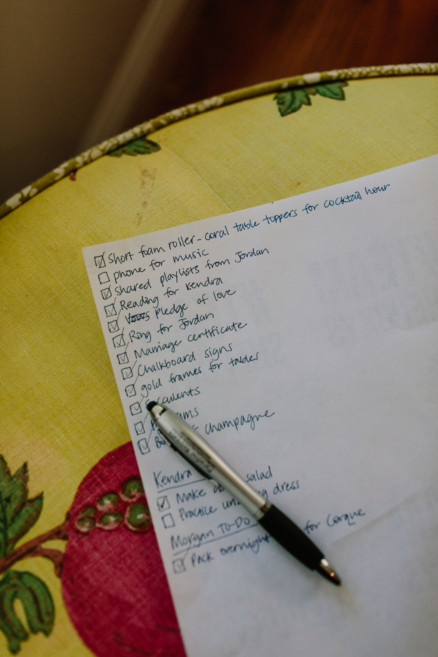 Short foam roller - coral table toppers for cocktail hour
phone for music
Shared playlists from Jordan
Reading for Kendra
Pledge of love
Ring for Jordan
Marriage certificate
Chalkboard signs
gold frames for tables
champagne
Kendra
Make salad
Practice dress
Morgan TO-DO
Pack overnight for